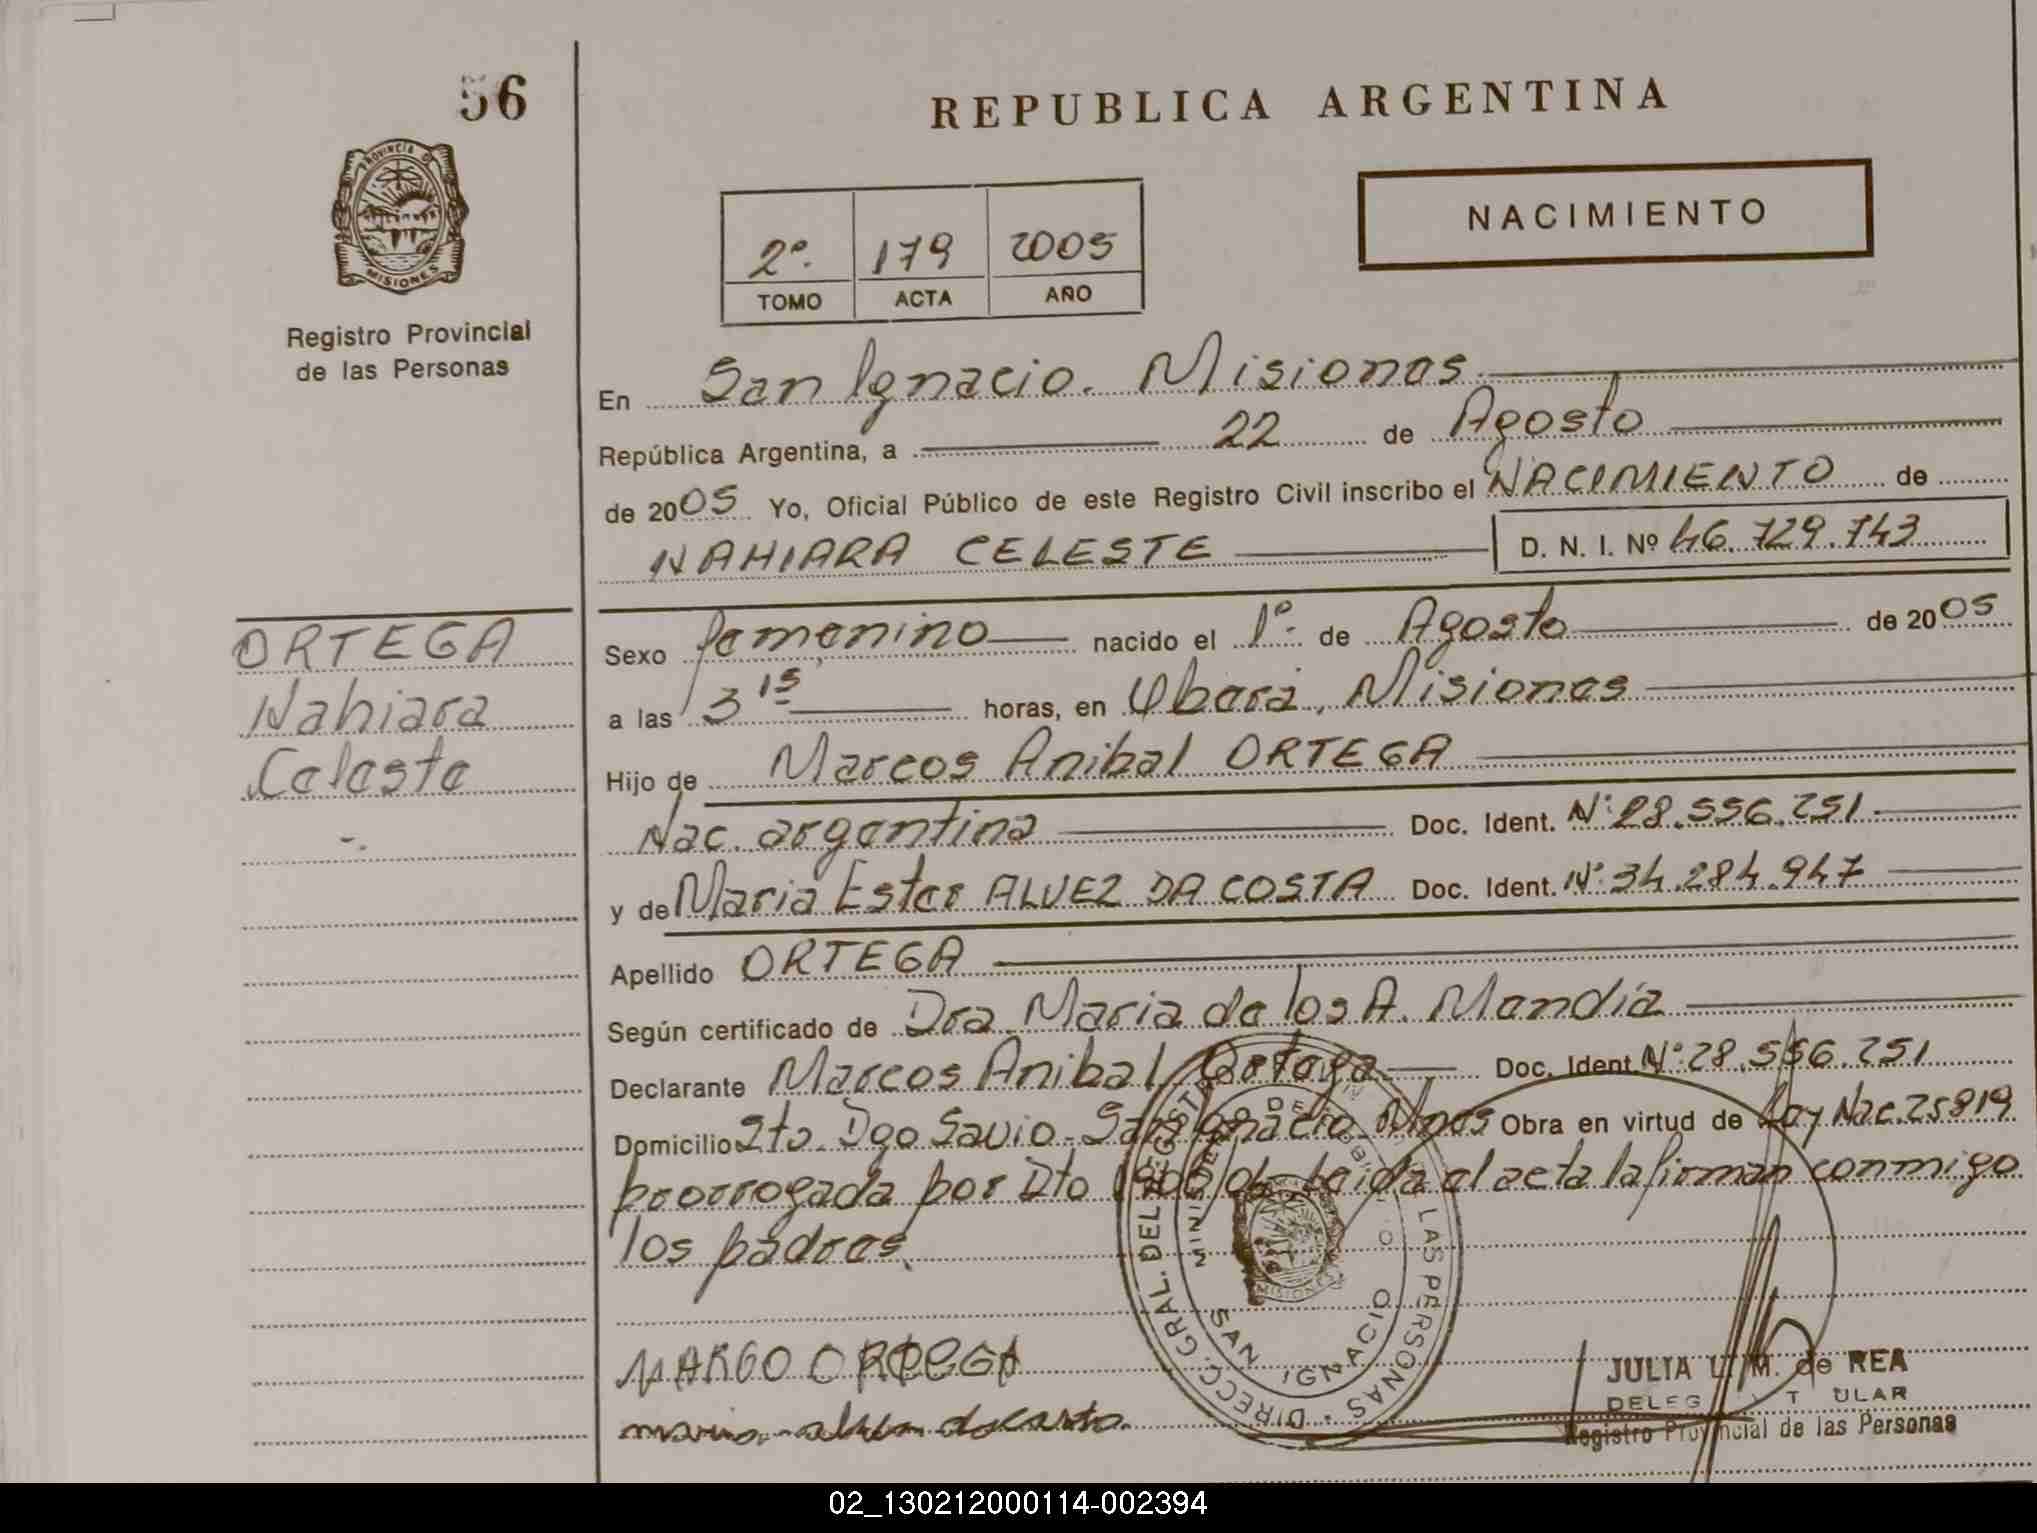 56
PROVINCIA DE
MISIONES
Registro Provincial
de las Personas
ORTEGA
Nahiara
Celeste
-.
REPUBLICA ARGENTINA
NACIMIENTO
2º. 179 2005
TOMO ACTA AÑO
En San Ignacio. Misiones
República Argentina, a 22 de Agosto
de 2005 Yo, Oficial Público de este Registro Civil inscribo el NACIMIENTO de
NAHIARA CELESTE D. N. I. Nº 46.729.743
Sexo femenino nacido el 1º. de Agosto de 2005
a las 3 15 horas, en Oberá, Misiones
Hijo de Marcos Anibal ORTEGA
Nac. argentina Doc. Ident. Nº 28.556.251
y de Maria Ester ALVEZ DA COSTA Doc. Ident. Nº 34.284.947
Apellido ORTEGA
Según certificado de Dra. Maria de los A. Mendía
Declarante Marcos Anibal Ortega Doc. Ident Nº 28.556.251
Domicilio Sto. Dgo Savio - San Ignacio Mnes Obra en virtud de Ley Nac. 25819
prorrogada por Dto Leida el acta la firman conmigo
los padres.
DIRECC. GRAL. DEL REGIST LAS PERSONAS
SAN IGNACIO
MISIONES
MARCO ORTEGA
JULIA M. de REA
DELEG T ULAR
Registro Provincial de las Personas
02_130212000114-002394